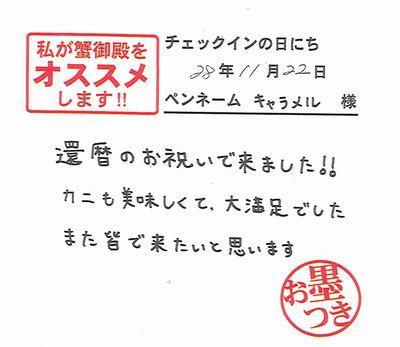 私が蟹御殿を
オススメ
します!!
チェックインの日にち
28年11月22日
ペンネーム キャラメル 様
還暦のお祝いで来ました!!
カニも美味しくて、大満足でした
また皆で来たいと思います
お墨つき